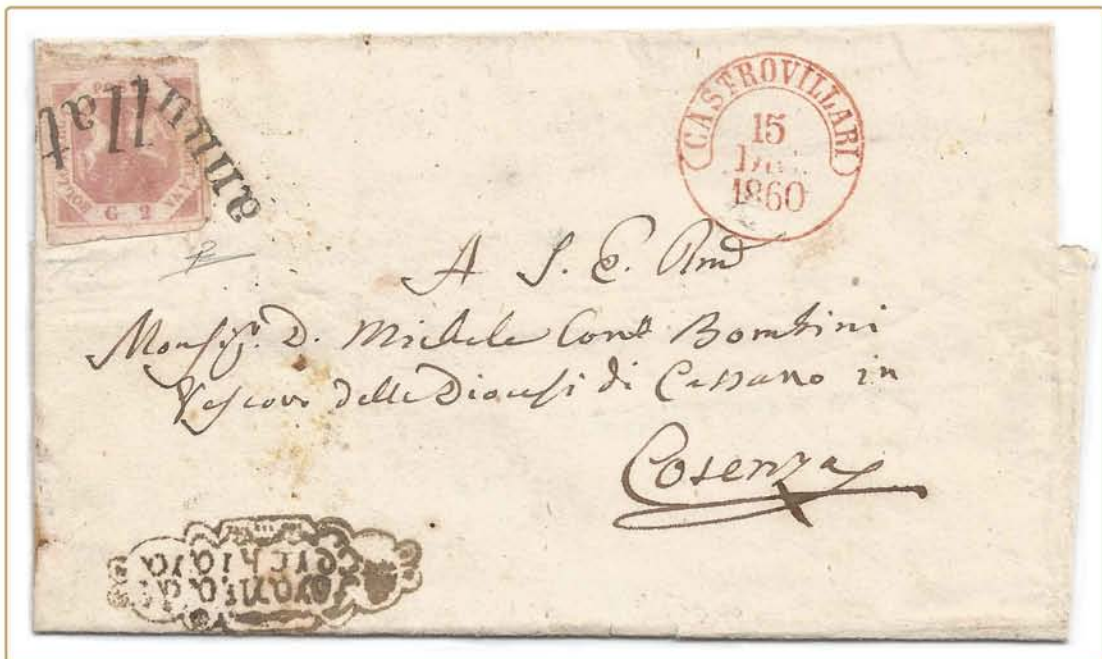 annullat
G 2
CASTROVILLARI
15
1860
A S. E.
D. Michele Bombini
Vescovo della Diocesi di Cassano in
Cosenza